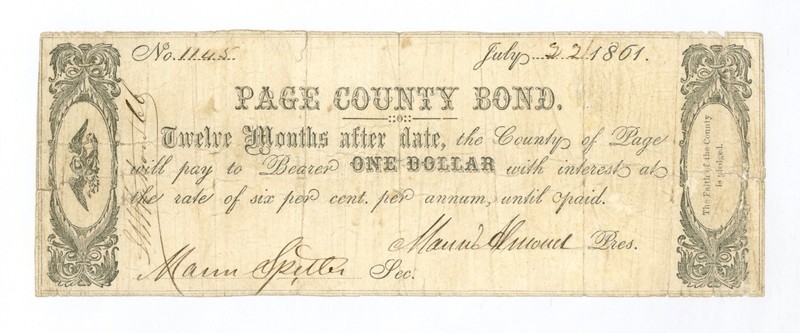 No. 1145 July 22 1861.
PAGE COUNTY BOND.
Twelve Months after date, the County of Page
will pay to Bearer ONE DOLLAR with interest at
the rate of six per cent. per annum, until paid.
Mann Almond Pres.
Mann Spitler Sec.
The Faith of the County
is pledged.